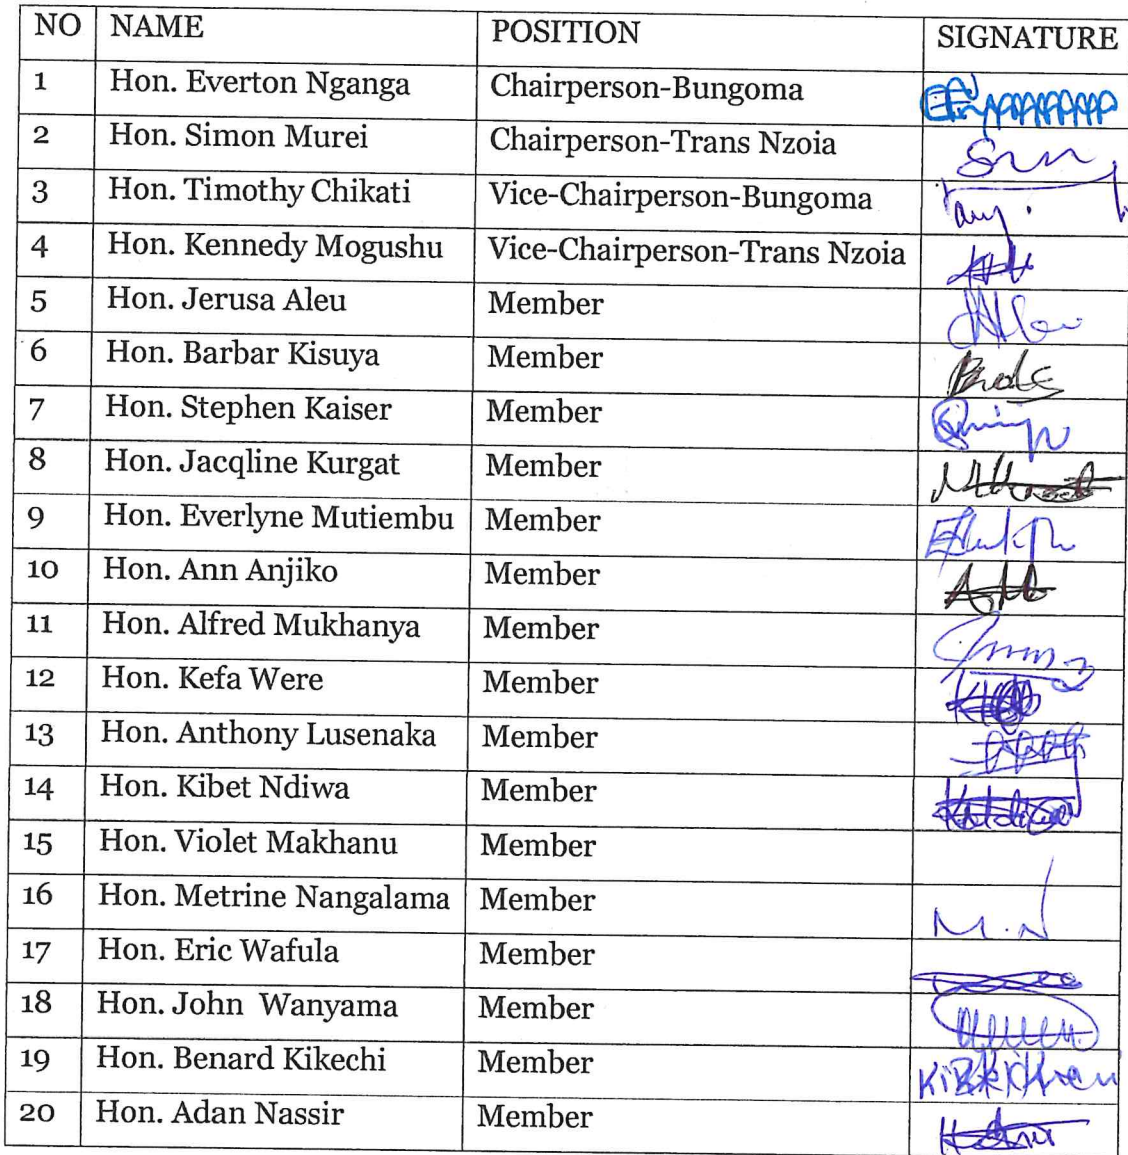 NO NAME POSITION SIGNATURE
1 Hon. Everton Nganga Chairperson-Bungoma
2 Hon. Simon Murei Chairperson-Trans Nzoia
3 Hon. Timothy Chikati Vice-Chairperson-Bungoma
4 Hon. Kennedy Mogushu Vice-Chairperson-Trans Nzoia
5 Hon. Jerusa Aleu Member
6 Hon. Barbar Kisuya Member
7 Hon. Stephen Kaiser Member
8 Hon. Jacqline Kurgat Member
9 Hon. Everlyne Mutiembu Member
10 Hon. Ann Anjiko Member
11 Hon. Alfred Mukhanya Member
12 Hon. Kefa Were Member
13 Hon. Anthony Lusenaka Member
14 Hon. Kibet Ndiwa Member
15 Hon. Violet Makhanu Member
16 Hon. Metrine Nangalama Member M.N
17 Hon. Eric Wafula Member
18 Hon. John Wanyama Member
19 Hon. Benard Kikechi Member
20 Hon. Adan Nassir Member